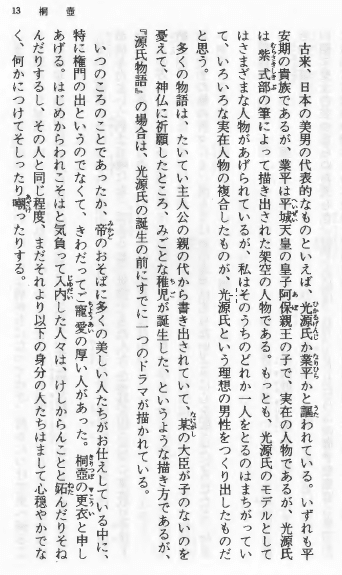 13 桐壺
古来、日本の美男の代表的なものといえば、光源氏か業平かと謳われている。いずれも平
安期の貴族であるが、業平は平城天皇の皇子阿保親王の子で、実在の人物であるが、光源氏
は紫式部の筆によって描き出された架空の人物である。もっとも、光源氏のモデルとして
はさまざまな人物があげられているが、私はそのうちのどれか一人をとるのはまちがってい
て、いろいろな実在人物の複合したものが、光源氏という理想の男性をつくり出したものだ
と思う。
多くの物語は、たいてい主人公の親の代から書き出されていて、某の大臣が子のないのを
憂えて、神仏に祈願したところ、みごとな稚児が誕生した、というような描き方であるが、
『源氏物語』の場合は、光源氏の誕生の前にすでに一つのドラマが描かれている。
いつのころのことであったか、帝のおそばに多くの美しい人たちがお仕えしている中に、
特に権門の出というのでなくて、きわだってご寵愛の厚い人があった。桐壺の更衣と申し
あげる。はじめからわれこそはと気負って入内した人々は、けしからんことと妬んだりそね
んだりするし、その人と同じ程度、まだそれより以下の身分の人たちはまして心穏やかでな
く、何かにつけてそしったり嘲ったりする。